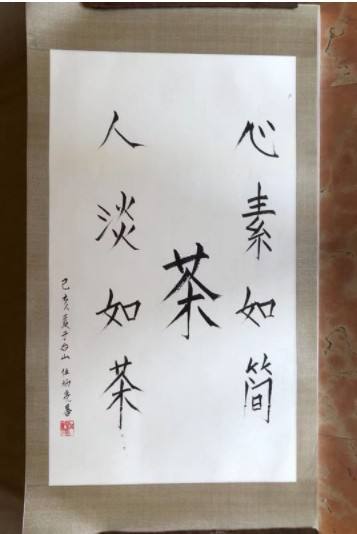 心素如简
茶
人淡如茶
己亥夏于山